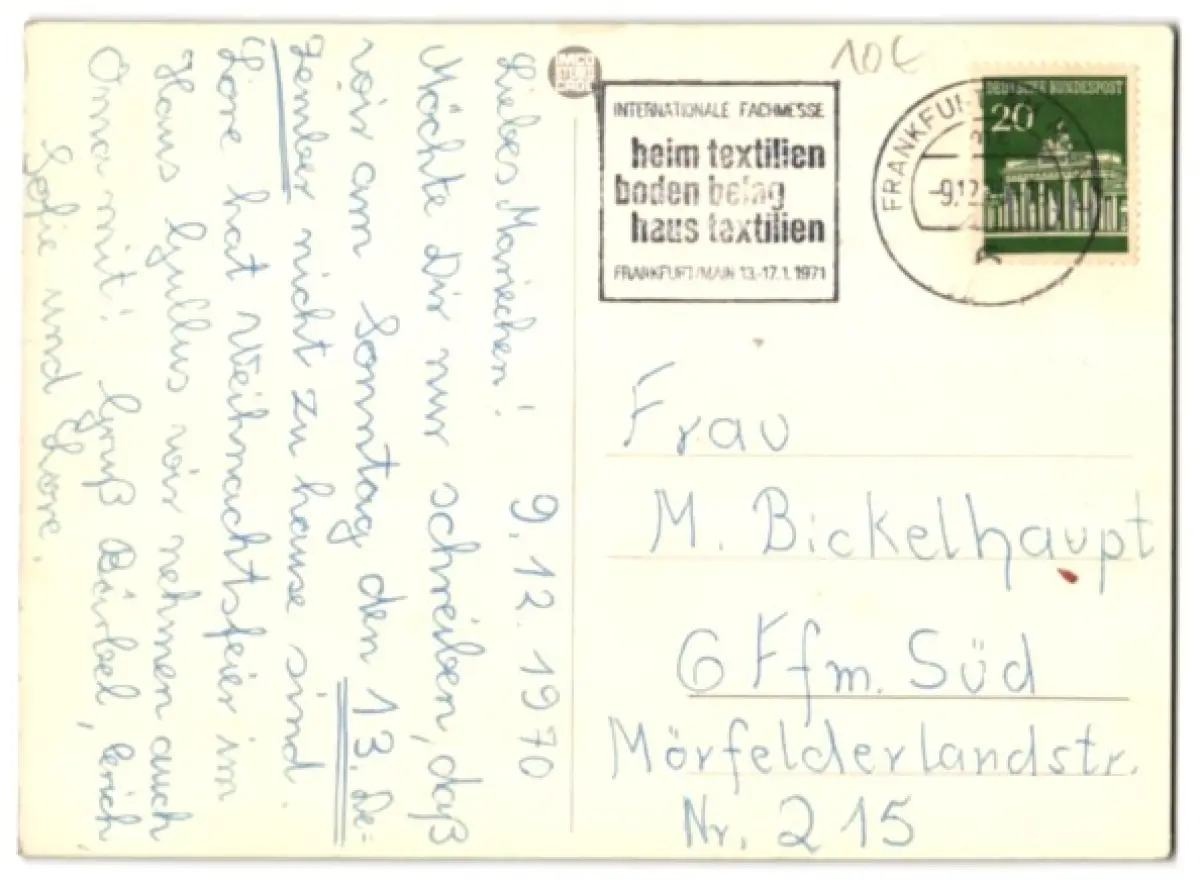 9.12.1970
Liebes Mariechen!
Möchte Dir nur schreiben, daß
wir am Sonntag den 13. De=
zember nicht zu hause sind.
Lore hat Weihnachtsfeier im
Haus Gallus wir nehmen auch
Oma mit! Gruß Bärbel, Erich,
Sofie und Lore.
10€
INTERNATIONALE FACHMESSE
heim textilien
boden belag
haus textilien
FRANKFURT/MAIN 13.-17.1.1971
-9.12.
DEUTSCHE BUNDESPOST
20
Frau
M. Bickelhaupt
6 Ffm. Süd
Mörfelderlandstr.
Nr. 215